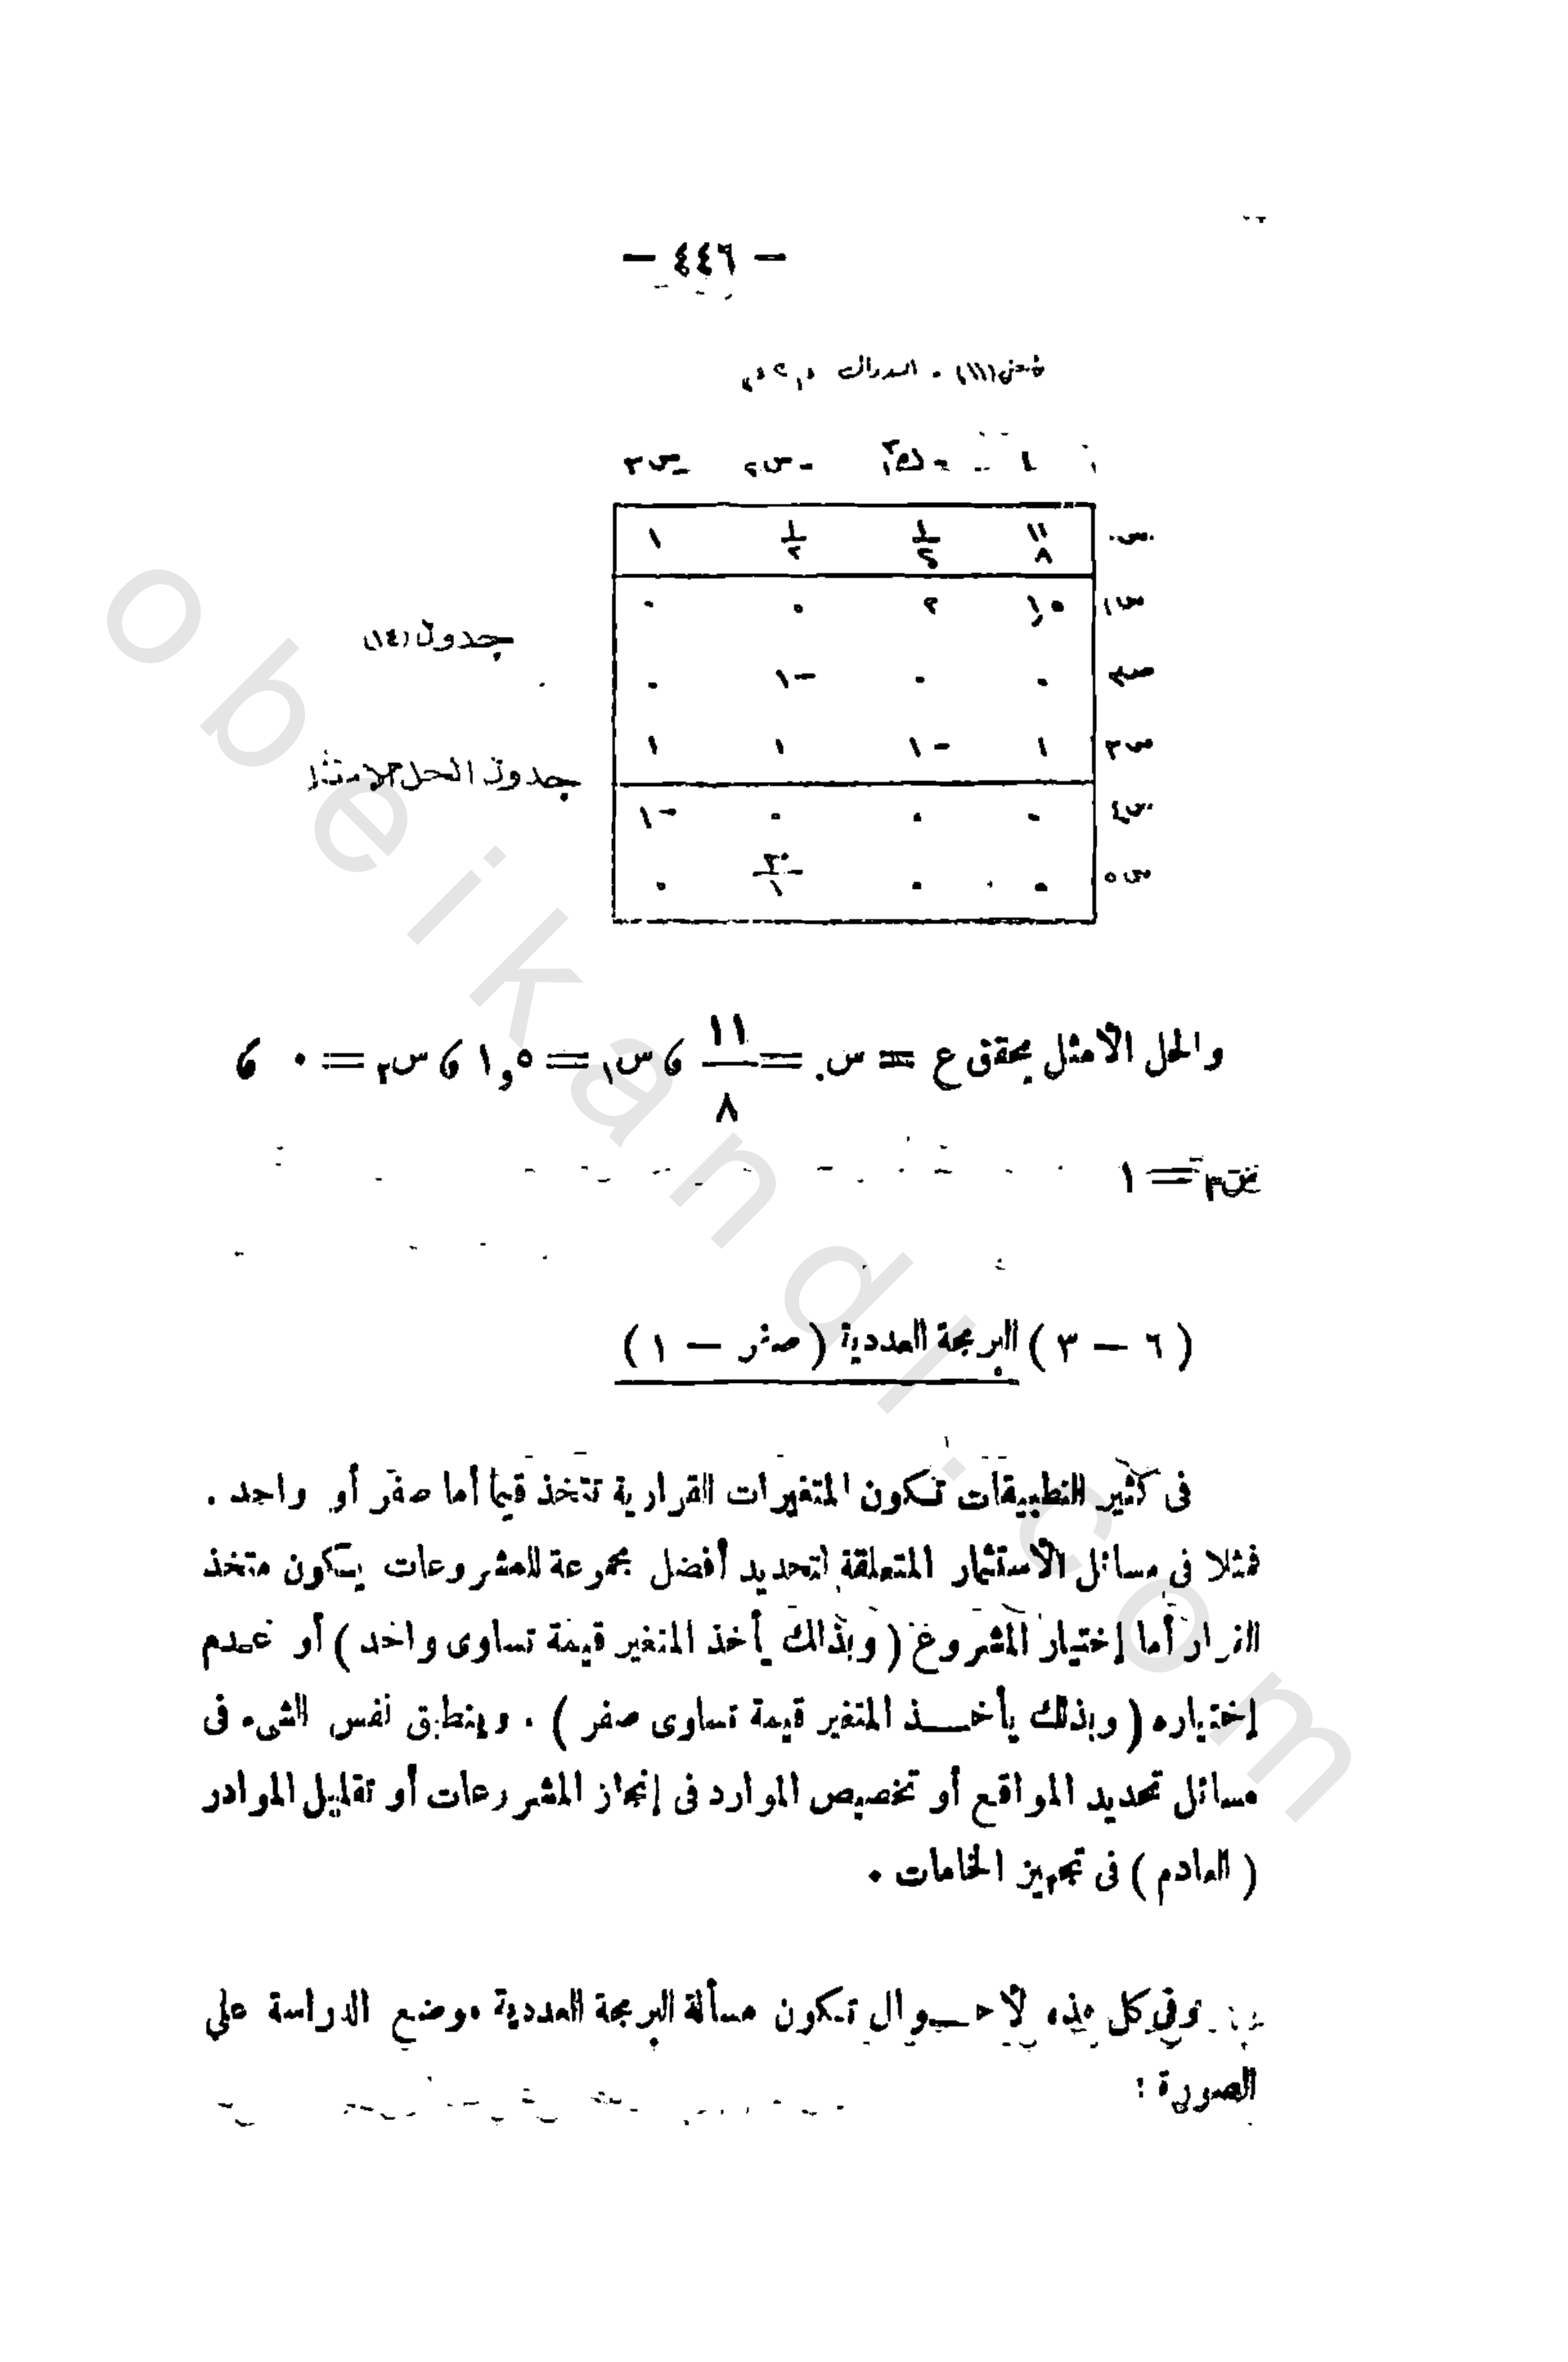 — ٤٤٦ —
١ - س٢ - س٣
س. ١١/٨ ١/٢ ١/٢ ١
س١ ١,٥ ٢ ٠ ٠
جدول (١٤)
س٢ ٠ ٠ -١ ٠
س٣ ١ -١ ١ ١
جدول الحل الامثل
س٤ ٠ ٠ ٠ -١
س٥ ٠ ٠ ٣٠/١ ٠
والحل الأمثل يحقق ع = س. = ١١/٨ ، س١ = ١,٥ ، س٢ = ٠ ،
س٣ = ١
( ٦ — ٣ ) البرمجة العددية ( صفر — ١ )
فى كثير التطبيقات تكون المتغيرات القرارية تتخذ قيما أما صفر أو واحد .
فمثلا فى مسائل الأستثمار المتعلقة لتحديد أفضل مجموعة للمشروعات يكون متخذ
القرار أما إختيار المشروع ( وبذلك يأخذ المتغير قيمة تساوى واحد ) أو عدم
إختياره ( وبذلك يأخذ المتغير قيمة تساوى صفر ) . وينطبق نفس الشىء فى
مسائل تحديد المواقع أو تخصيص الموارد فى إنجاز المشروعات أو تقليل الموادر
( العادم ) فى تجهيز الخامات .
وفى كل هذه الأحوال تكون مسألة البرمجة العددية موضع الدراسة على
الصورة :
obeikandl.com